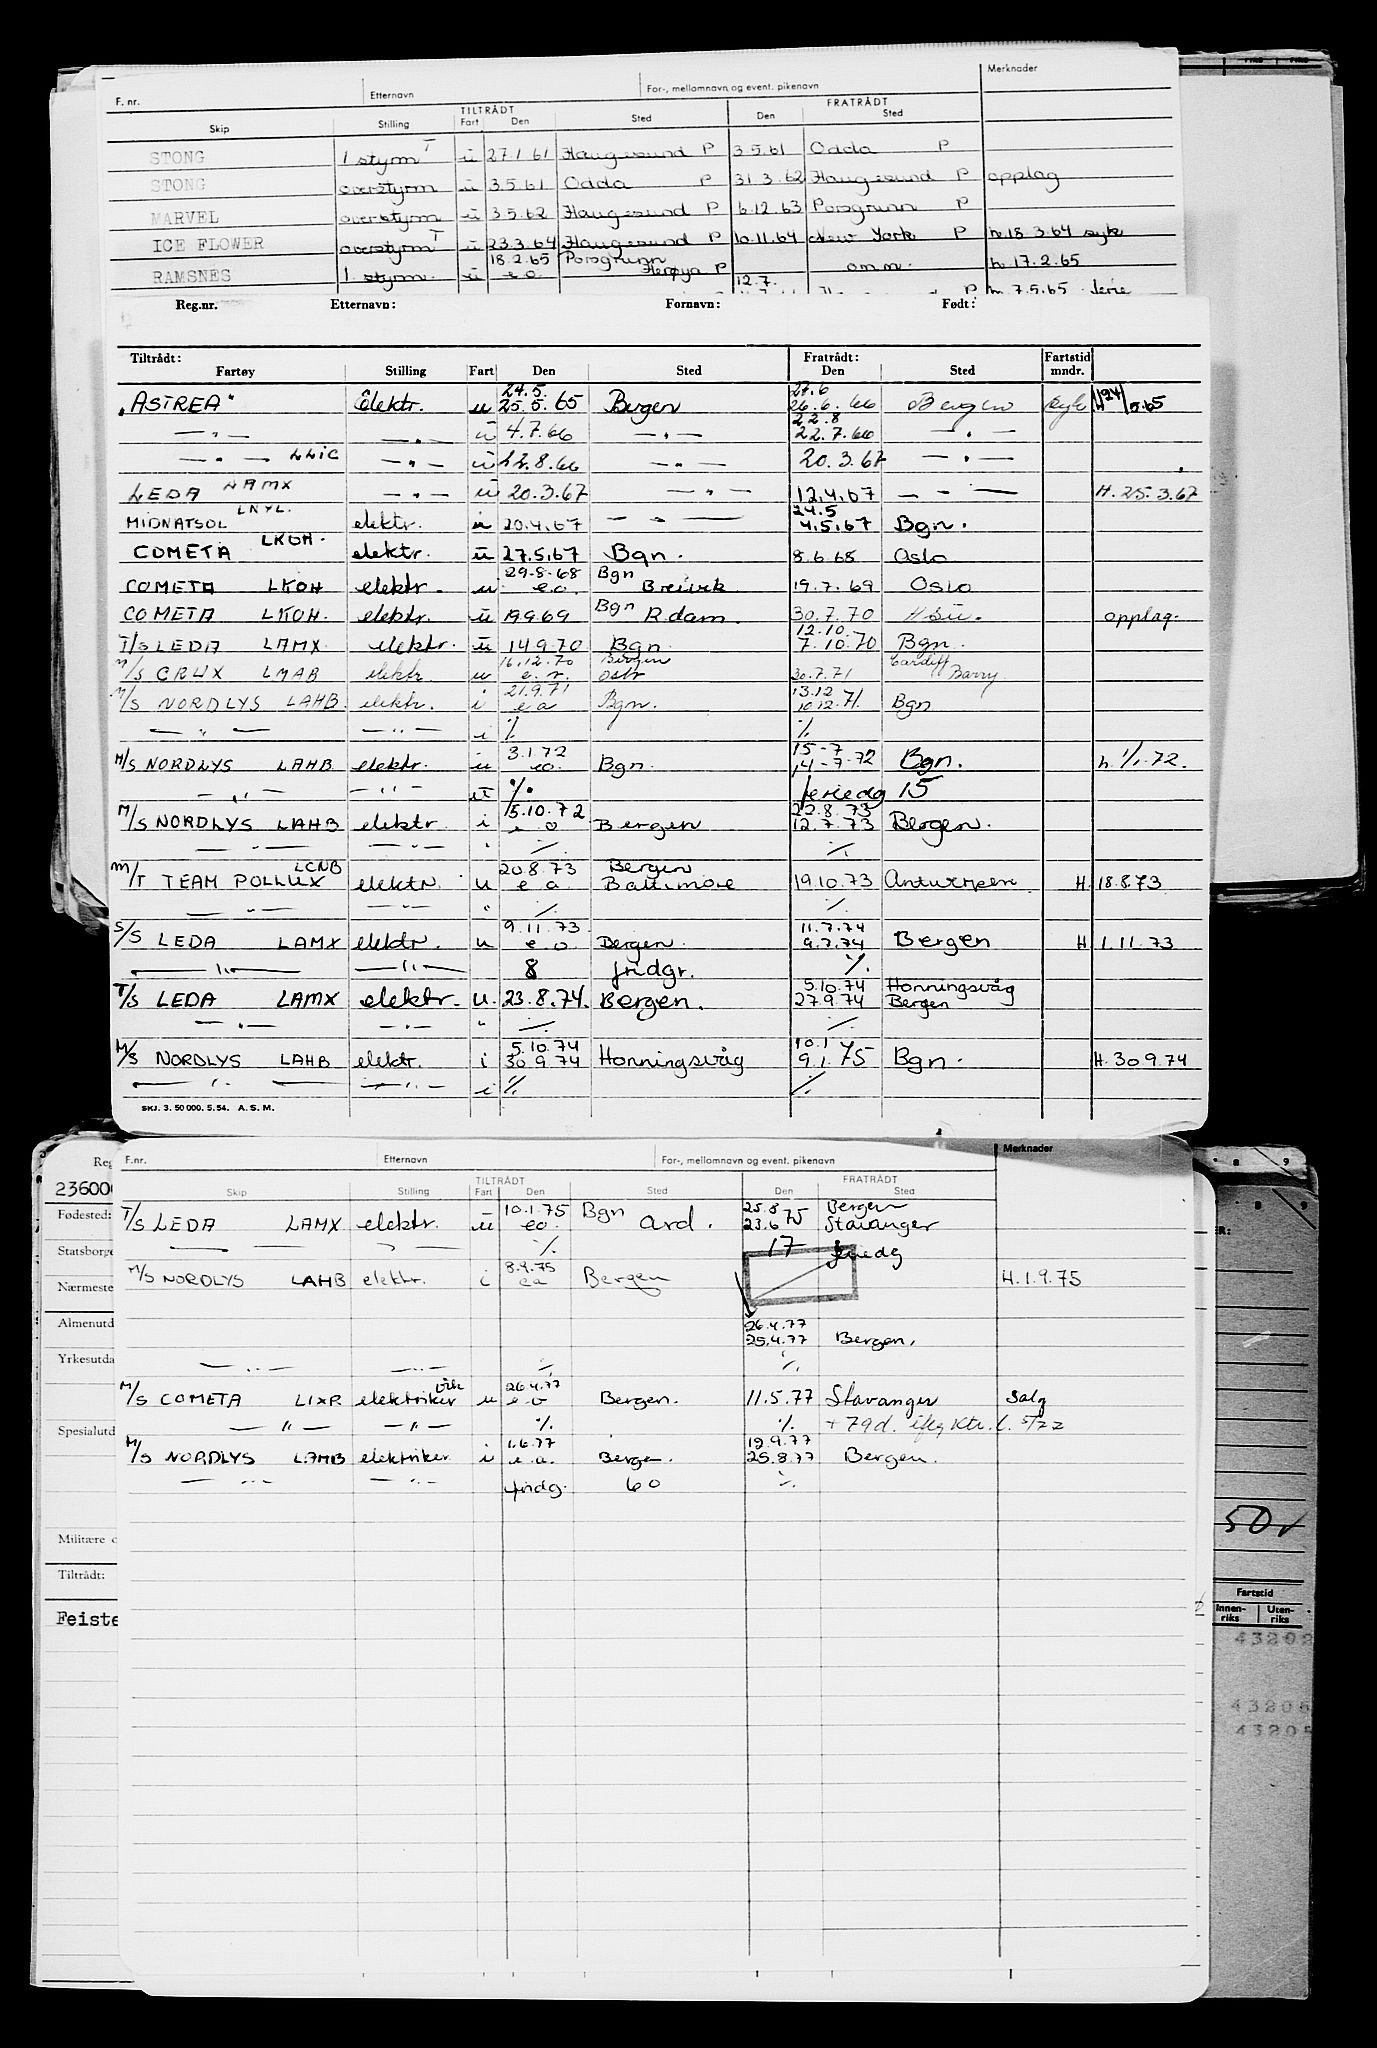 F. nr. Etternavn For-, mellomnavn og event. pikenavn Merknader
TILTRÅDT FRATRÅDT
Skip Stilling Fart Den Sted Den Sted
STONG 1 styrm T u 27.1.61 Haugesund P 3.5.61 Odda P
STONG overstyrm u 3.5.61 Odda P 31.3.62 Haugesund P opplag
MARVEL overstyrm u 3.5.62 Haugesund P 6.12.63 Porsgrunn P
ICE FLOWER overstyrm T u 23.3.64 Haugesund P 10.11.64 New York P h. 18.3.64 syk
18.2.65 Porsgrunn
RAMSNES 1. styrm. u e.o. Herøya P omm. h. 17.2.65
12.7. P h. 7.5.65 ferie
Reg.nr. Etternavn: Fornavn: Født:
Tiltrådt: Fratrådt: Fartstid
Fartøy Stilling Fart Den Sted Den Sted mndr.
24.5. 27.6
"ASTREA" Elektr. u 25.5.65 Bergen 26.6.66 Bergen syk H 24/5.65
22.8
— " — — " — u 4.7.66 — " — 22.7.66 — " —
— " — LLIC — " — u 22.8.66 — " — 20.3.67 — " —
LEDA LAMX — " — u 20.3.67 — " — 12.4.67 — " — H. 25.3.67
LNYL. 24.5
MIDNATSOL elektr. u 20.4.67 — " — 4.5.67 Bgn.
COMETA LKOH. elektr. u 27.5.67 Bgn. 8.6.68 Oslo
29.8.68 Bgn
COMETA LKOH elektr. u e.o. Breivik 19.7.69 Oslo
COMETA LKOH. elektr. u 19.9.69 Bgn R.dam. 30.7.70 opplag.
12.10.
T/S LEDA LAMX. elektr. u 14.9.70 Bgn 7.10.70 Bgn.
16.12.70 Bergen Cardiff
M/S CRUX LMAB elektr. u 20.7.71 Barry
21.9.71 13.12
M/S NORDLYS LAHB. elektr. i e a Bgn. 10.12.71. Bgn
— " — — " — i ٪ ٪
3.1.72 15-7
M/S NORDLYS LAHB elektr. u eo. Bgn. 14-7-72 Bgn. h. 1/1.72.
— " — — " — ٪ feriedg 15
5.10.72 22.8.73
M/S NORDLYS LAHB elektr. i e o Bergen 12.7.73 Bergen.
— " — — " — " ٪ ٪
LCNB 20.8.73 Bergen
M/T TEAM POLLUX elektr. u e a Baltimore 19.10.73 Antwerpen H. 18.8.73
— " — — " — " ٪ ٪
9.11.73 11.7.74
S/S LEDA LAMX elektr. u e.o. Bergen. 9.7.74 Bergen H 1.11.73
— " — — " — 8 fridgr. ٪
5.10.74 Honningsvåg
T/S LEDA LAMX elektr. u. 23.8.74. Bergen. 27.9.74 Bergen
— " — — " — " ٪ ٪
5.10.74 10.1
M/S NORDLYS LAHB elektr. i 30.9.74 Honningsvåg 9.1.75 Bgn. H. 30.9.74
— " — — " — i ٪ ٪
SKJ. 3. 50 000. 5. 54. A. S. M.
F.nr. Etternavn For-, mellomnavn og event. pikenavn Merknader
TILTRÅDT FRATRÅDT
Skip Stilling Fart Den Sted Den Sted
10.1.75 Bgn 25.8 Bergen
T/S LEDA LAMX elektr. u eo. Ard. 23.6.75 Stavanger
— — ٪ 17 friedg
8.9.75
M/S NORDLYS LAHB elektr. i e a Bergen H. 1.9.75
26.4.77
25.4.77 Bergen.
— " — — " — ٪ ٪
26.4.77
M/S COMETA LIXR elektriker u e o Bergen. 11.5.77 Stavanger Salg
— " — — " — ٪ ٪ + 79 d. iflg ktr. l. 5/72
1.6.77 19.9.77
M/S NORDLYS LAHB elektriker i e.a. Bergen. 25.8.77 Bergen.
— " — — " — fridg. 60 ٪
Reg
23600
Fødested:
Statsborge
Nærmeste
Almenutd
Yrkesutda
Spesialutd
Militære o
Tiltrådt:
Feiste
8 9
8 9
ER:
50 ✓
Fartstid
Innen-riks Uten-riks
43202
43206
43205